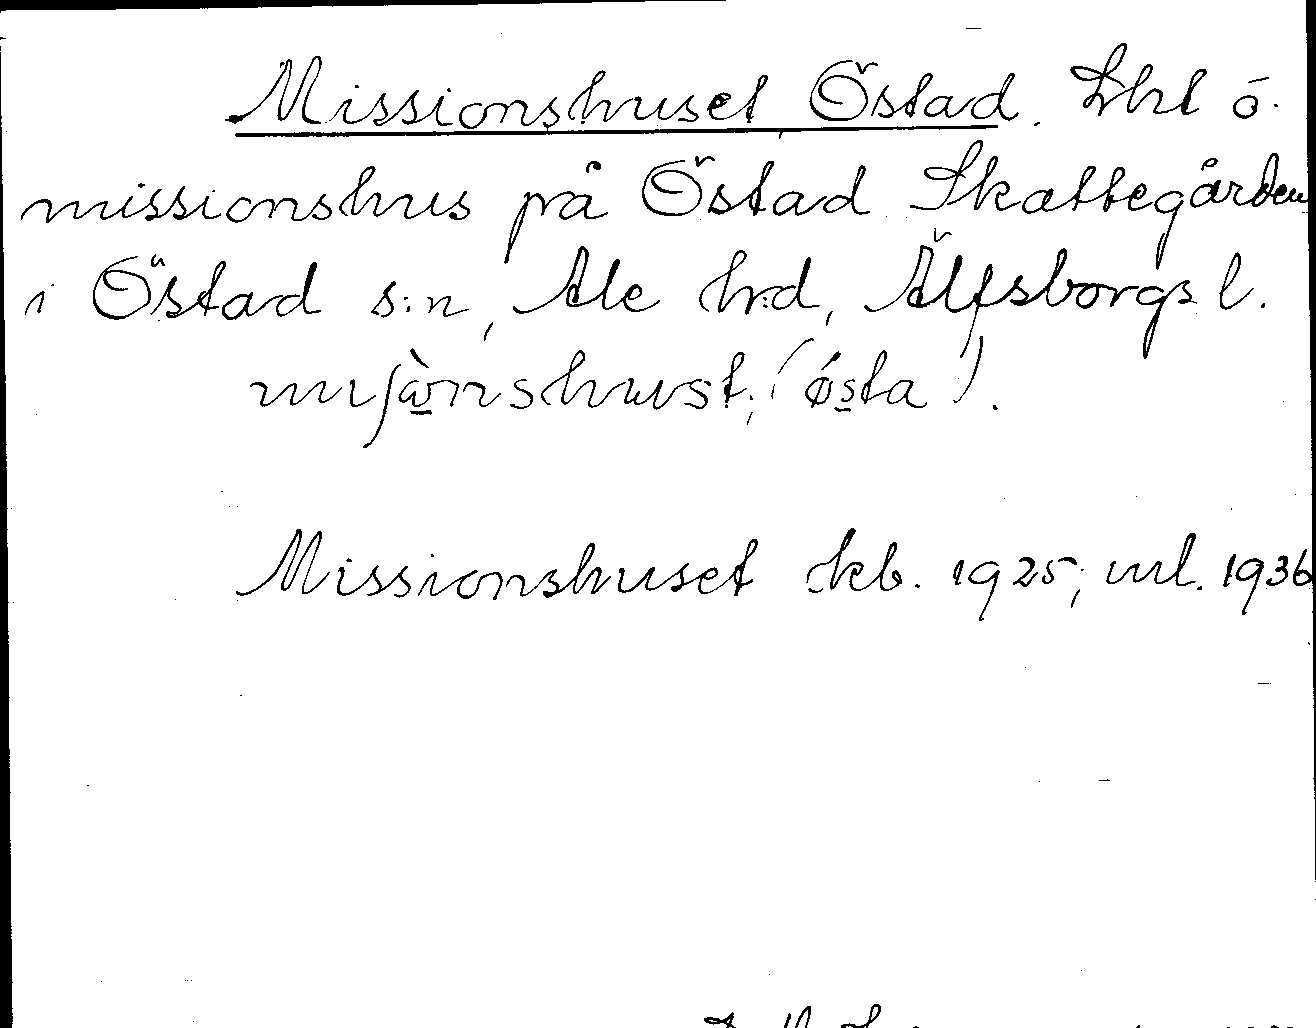 Missionshuset Östad. Lht o.
missionshus på Östad Skattegården
i Östad s:n, Ale h:d, Älfsborgs l.
miʃɷ̀nshust; (østa).
Missionshuset kb. 1925; ml. 1936